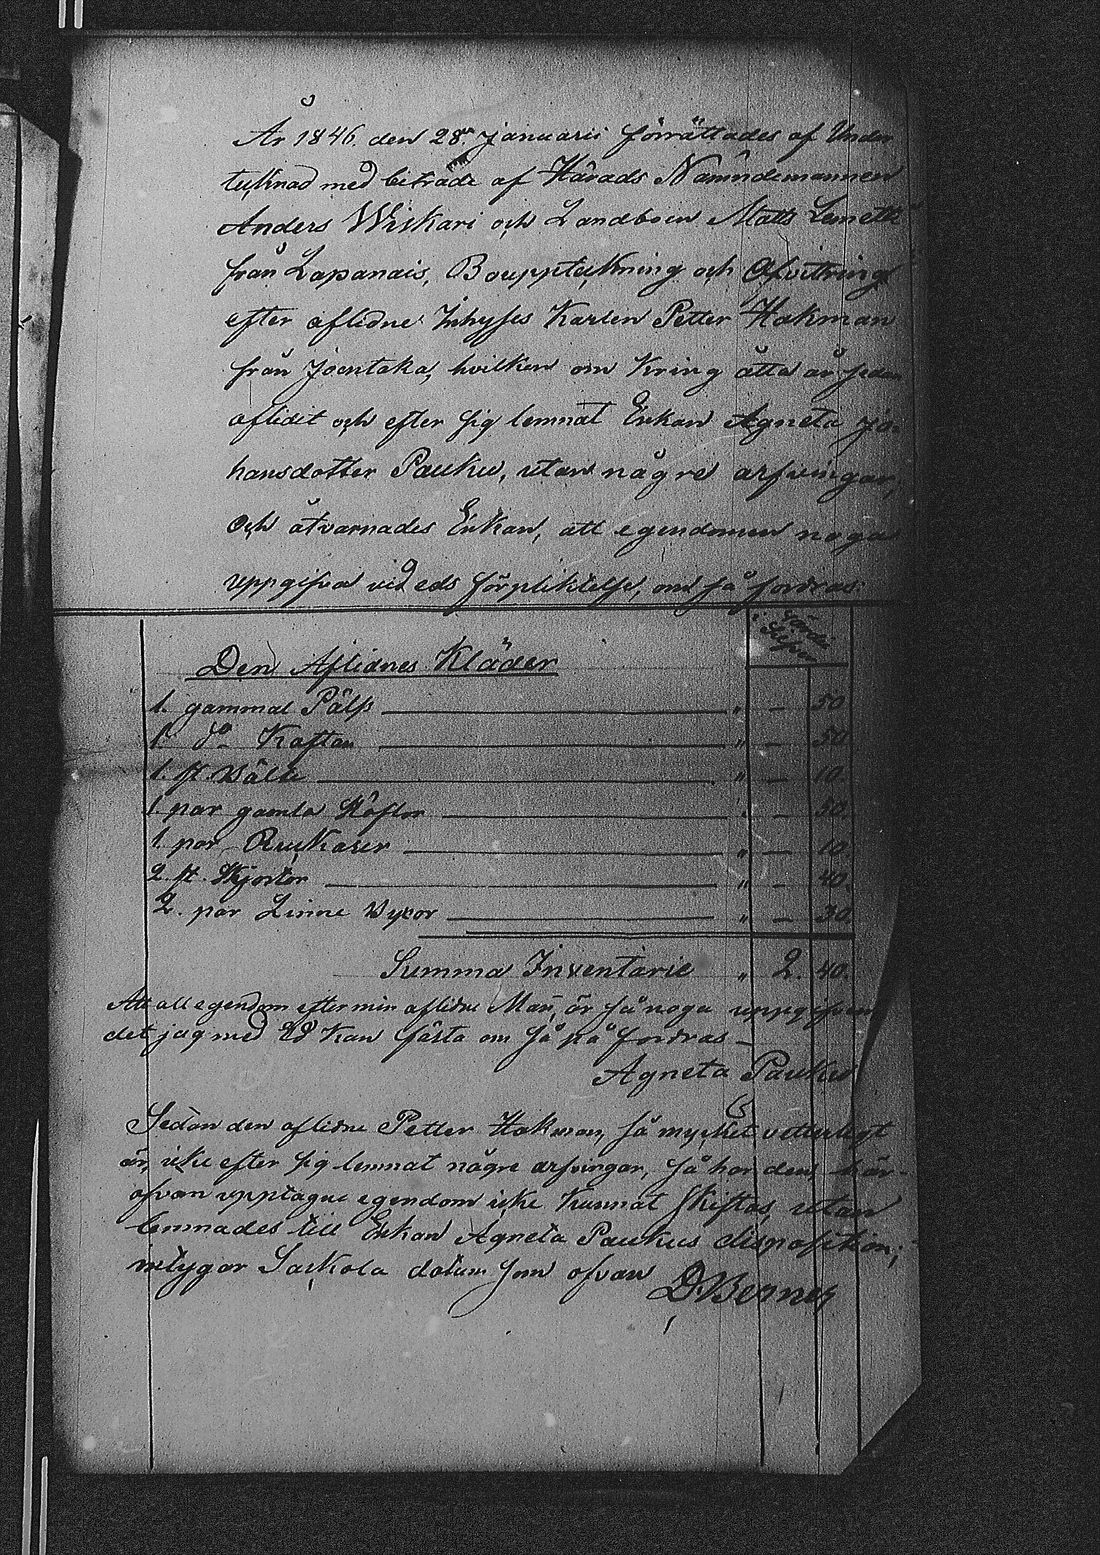 År 1846. den 28. Januarii förrättades af Under
tecknad med biträde af Härads Nämndemannen
Anders Wiskari och Landboen Matts Lemetti
från Lapanais, Bouppteckning och Afvittring
efter aflidne Inhyses Karlen Petter Hakman
från Joentaka, hvilken om kring åtta år sedan
aflidit och efter sig lemnat Enkan Agneta Jo-
hansdotter Pauku, utan några arfvingar,
och åtvarnades Enkan, att egendomen noga
uppgifva vid eds förpliktelse, om så fordras:
Silfver
Den Aflidnes Kläder
1. gammal Päls " — 50
1. do Kaftan " — 50
1. st. Bälte " — 10.
1. par gamla Stöflor " — 50.
1. par Rukaser " — 10
2. st. Skjortor " — 40.
2. par Linne Byxor " — 30
Summa Inventarie " 2. 40.
Att all egendom efter min aflidne Man, är så noga uppgifven
det jag med Ed kan fästa om så på fordras —
Agneta Pauku
Sedan den aflidne Petter Hakman, så mycket vetterligt
är, icke efter sig lemnat några arfvingar, så har den här-
ofvan upptagne egendom icke kunnat skiftas, utan
lemnades till Enkan Agneta Paukus disposition;
intygar Sackola datum som ofvan D. Berner